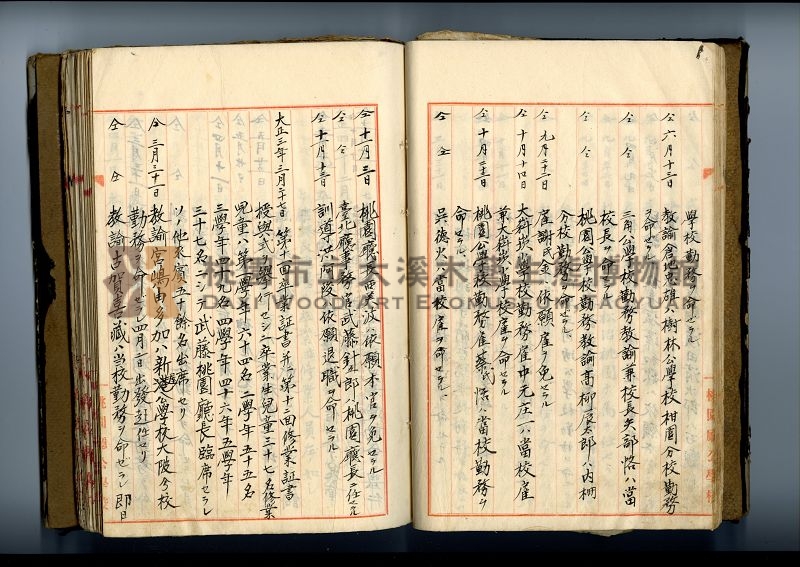 學校勤務ヲ命セラル
仝 六月十三日
教諭倉地
樹林公學校柑園分校勤務
ヲ命セラル
仝 仝
三角公學校勤務教諭兼校長矢部恪ハ當
校長ヲ命セラル
仝 仝
桃園公學校勤務教諭高柳
太郎ハ內柵
分校勤務ヲ命セラル
仝 九月二十一日
雇謝氏
依願雇ヲ免セラル
仝 十月十四日
大科崁公學校勤務雇中元庄一ハ當校雇
兼大科崁公學校雇ヲ命セラル
仝 十月二十三日
桃園公學校勤務雇蔡氏恬ハ當校勤務ヲ
命セラル
仝 仝
吳德火ハ當校雇ヲ命セラル
仝 十一月三日
桃園廳長西美波ハ依願本官ヲ免セラル
仝 仝
臺北廳事務官武藤針五郎ハ桃園廳長ニ任セラル
仝 十一月十三日
訓導洪阿
依願退職ヲ命セラル
大正三年三月二十七日
第十四回卒業証書並ニ第十二回修業証書
授與式ヲ舉行セシニ卒業生兒童三十七名修業
兒童八第一學年六十四名二學年五十五名
三學年三十九名四學年四十六年五學年
三十七名ニシテ武藤桃園廳長臨席セラレ
ソノ他來賓五十餘名出席セリ
仝 三月三十一日
教諭宮嶋由多加ハ新港公學校大陂分校
勤務ヲ命セラレ四月二日出發赴任セリ
仝 仝
教諭古賀喜藏ハ当校勤務ヲ命ゼラレ即日
桃園市立大溪木藝生態博物館
DAXI WOOD ART ECOMUSEUM TAOYUAN